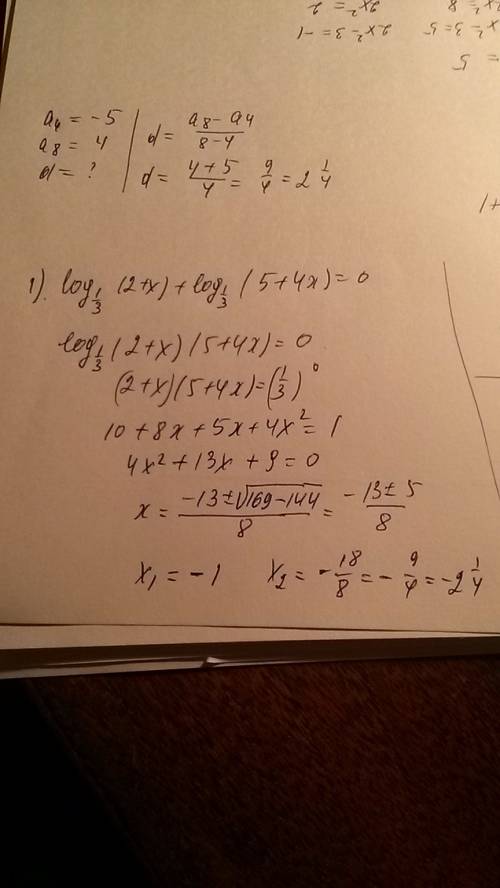 2x²= 2
2x²-3= -1
x²= 8
x²-3= 5
= 5
a₄ = -5
a₈ = 4
d= ?
d= \frac{a₈ - a₄}{8-4}
d= \frac{4+5}{4} = \frac{9}{4} = 2\frac{1}{4}
1+
1). log_{\frac{1}{3}} (2+x) + log_{\frac{1}{3}} (5+4x) = 0
log_{\frac{1}{3}} (2+x) (5+4x) = 0
(2+x)(5+4x) = (\frac{1}{3})⁰
10 + 8x + 5x + 4x² = 1
4x² + 13x + 9 = 0
x = \frac{-13 ± \sqrt{169-144}}{8} = \frac{-13 ± 5}{8}
x₁ = -1    x₂ = -\frac{18}{8} = -\frac{9}{4} = -2\frac{1}{4}